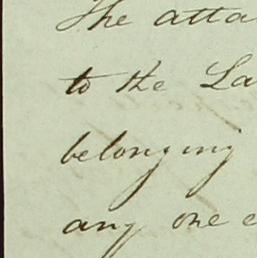 The atta
to the La
belonging
any one